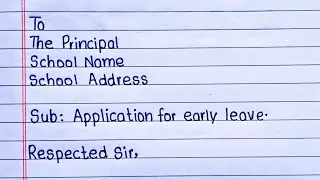 To
The Principal
School Name
School Address
Sub: Application for early leave.
Respected Sir,